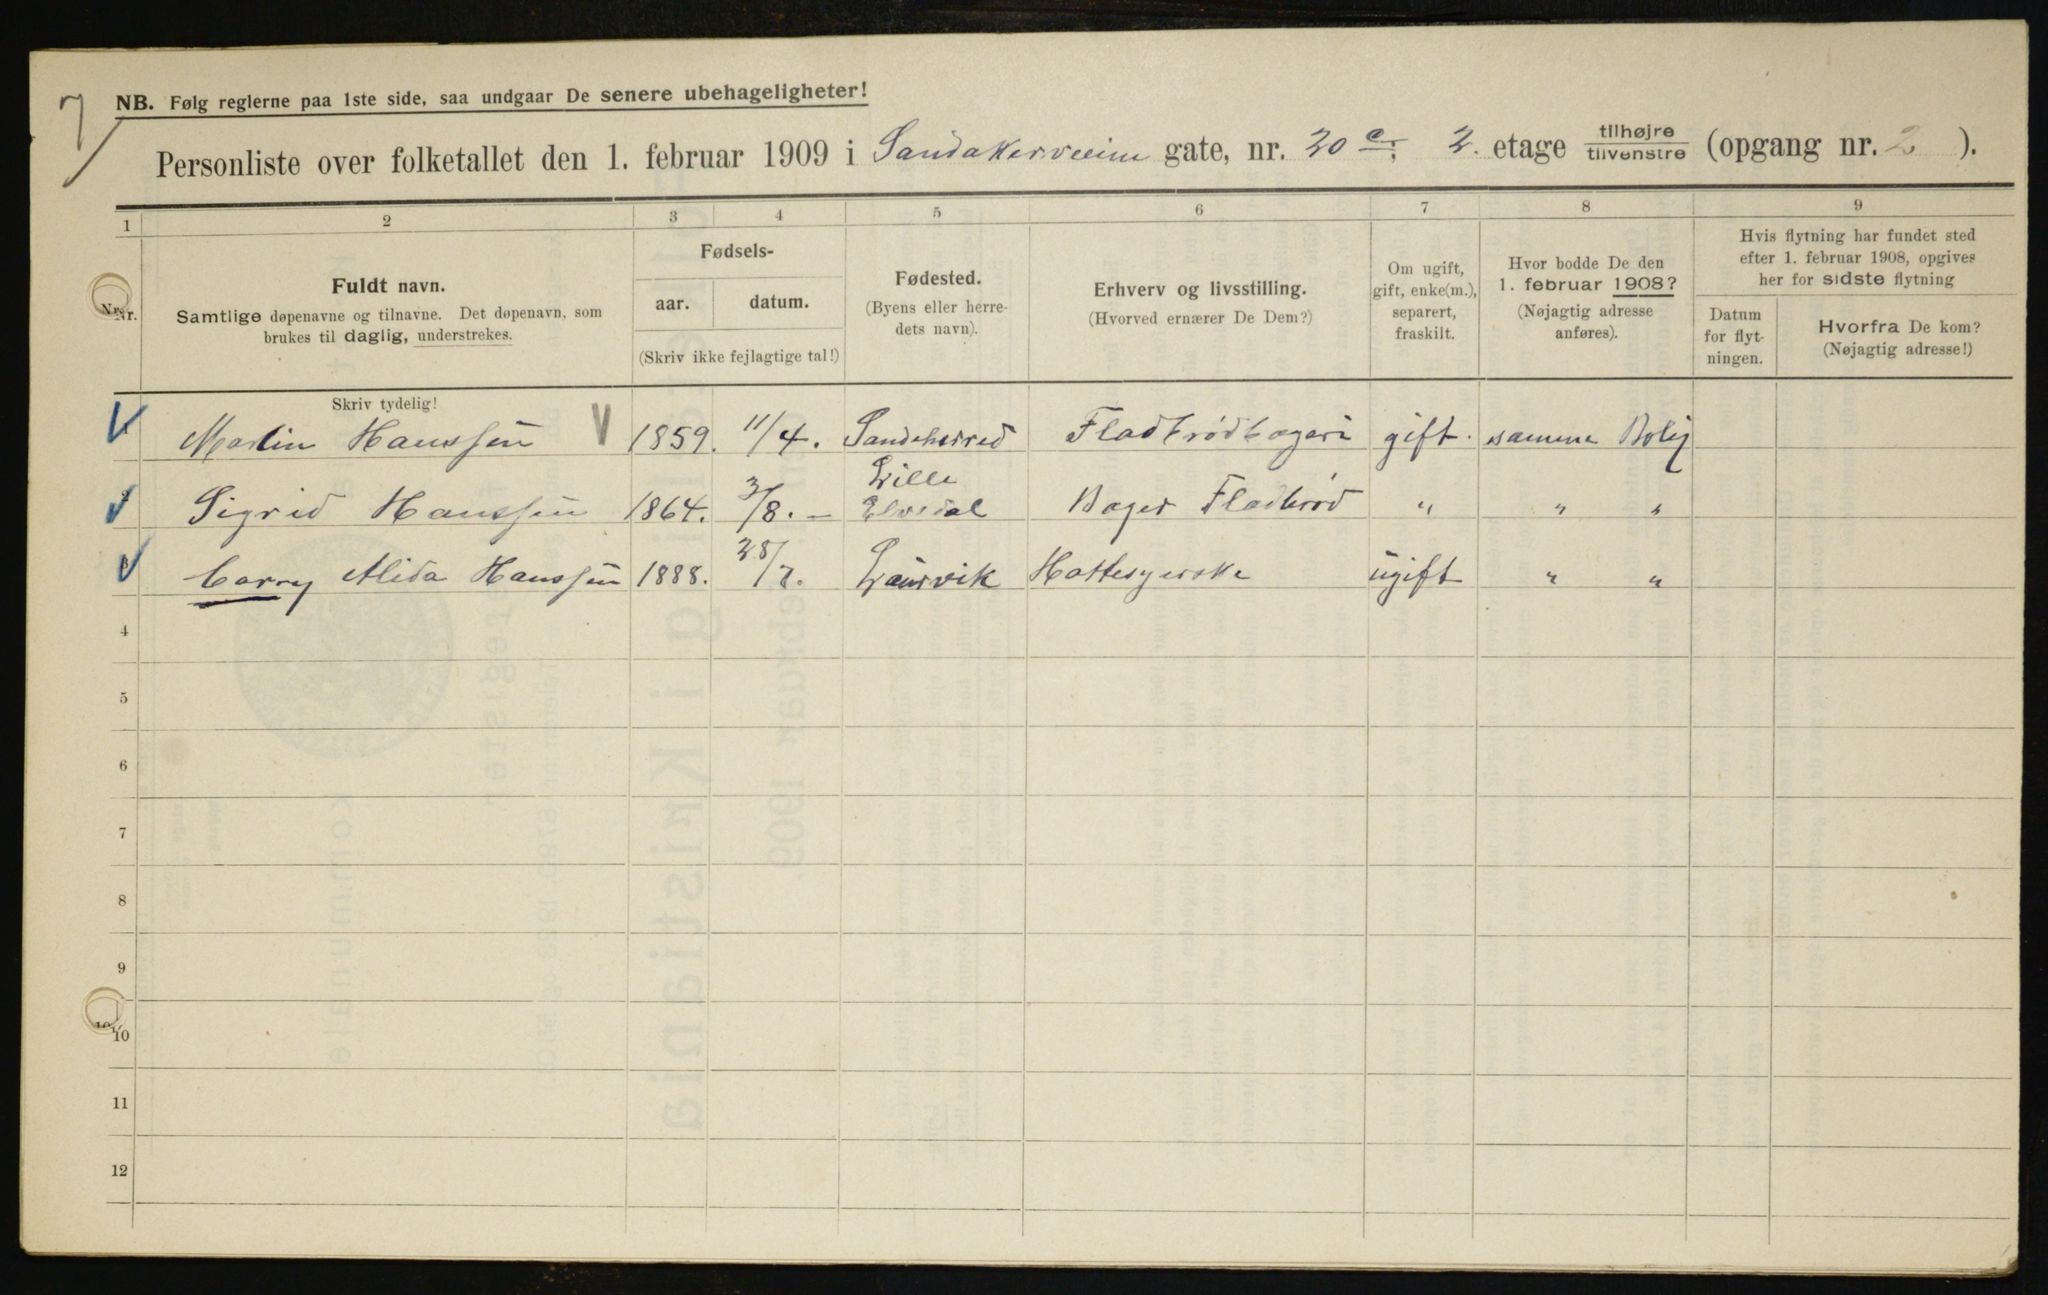 7
NB. Følg reglerne paa 1ste side, saa undgaar De senere ubehageligheter!
Personliste over folketallet den 1. februar 1909 i Sandakerveien gate, nr. 20 c. 2. etage tilhøjre/tilvenstre (opgang nr. 2 ).
1 2 3 4 5 6 7 8 9
Nr. Fuldt navn. Samtlige døpenavne og tilnavne. Det døpenavn, som brukes til daglig, understrekes.
Fødsels-
aar. datum.
(Skriv ikke fejlagtige tal!)
Fødested.
(Byens eller herre-
dets navn).
Erhverv og livsstilling.
(Hvorved ernærer De Dem?)
Om ugift,
gift, enke(m.),
separert,
fraskilt.
Hvor bodde De den
1. februar 1908?
(Nøjagtig adresse
anføres).
Hvis flytning har fundet sted
efter 1. februar 1908, opgives
her for sidste flytning
Datum
for flyt-
ningen.
Hvorfra De kom?
(Nøjagtig adresse!)
Skriv tydelig!
Martin Hanssen 1859. 11/4. Sandeherred Fladbrødbageri gift. samme Bolig
Sigrid Hanssen 1864. 3/8. – Lille Elvedal Bager Fladbrød " " "
3 Carry Alida Hanssen 1888. 28/7. Laurvik Hattesyerske ugift " "
4
5
6
7
8
9
10
11
12